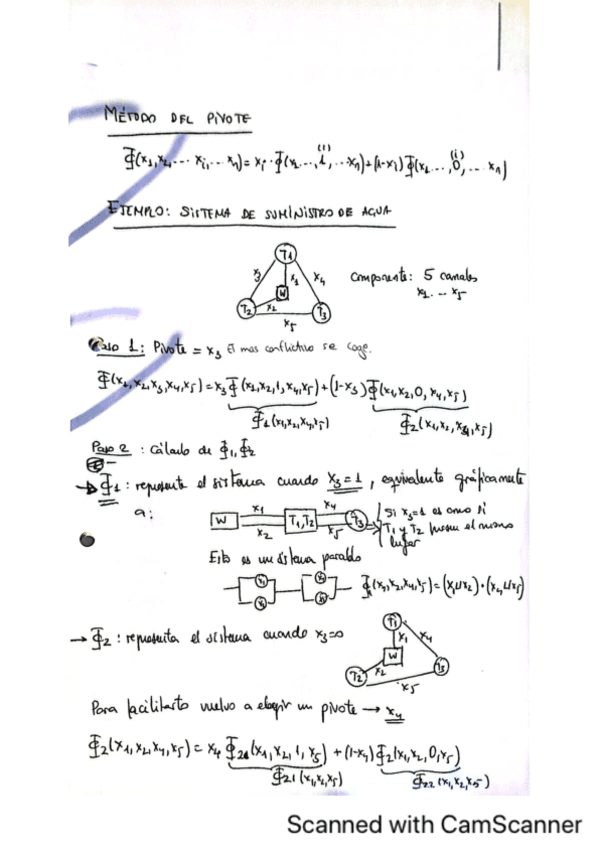 MÉTODO DEL PIVOTE
Φ(x₁,x₂,... xᵢ,... xₙ) = xᵢ·Φ(x₁...,1⁽ⁱ⁾,...xₙ)+(1-xᵢ)Φ(x₁...,0⁽ⁱ⁾,...xₙ)
EJEMPLO: SISTEMA DE SUMINISTRO DE AGUA
T₁
x₃ x₁ x₄
W
T₂ x₂ T₃
x₅
Componente: 5 canales
x₁ ... x₅
Paso 1: Pivote = x₃ El mas conflictivo se coge.
Φ(x₁,x₂,x₃,x₄,x₅)=x₃Φ(x₁,x₂,1,x₄,x₅)+(1-x₃)Φ(x₁,x₂,0,x₄,x₅)
Φ₁(x₁,x₂,x₄,x₅) Φ₂(x₁,x₂,x₄,x₅)
Paso 2: cálculo de Φ₁,Φ₂
→ Φ₁: representa el sistema cuando x₃=1, equivalente gráficamente
a:
W x₁ x₂ T₁,T₂ x₄ x₅ T₃
Si x₃=1 es como si
T₁ y T₂ el mismo
lugar
Esto es un sistema paralelo
x₁ x₂ x₄ x₅
Φ₁(x₁,x₂,x₄,x₅)=(x₁⊔x₂)·(x₄⊔x₅)
→ Φ₂: representa el sistema cuando x₃=0
T₁
x₁ x₄
W
T₂ x₂ T₃
x₅
Para facilitarlo vuelvo a elegir un pivote → x₄
Φ₂(x₁,x₂,x₄,x₅) = x₄ Φ₂₁(x₁,x₂,1,x₅) + (1-x₄)Φ₂(x₁,x₂,0,x₅)
Φ₂₁(x₁,x₂,x₅) Φ₂₂(x₁,x₂,x₅)
Scanned with CamScanner